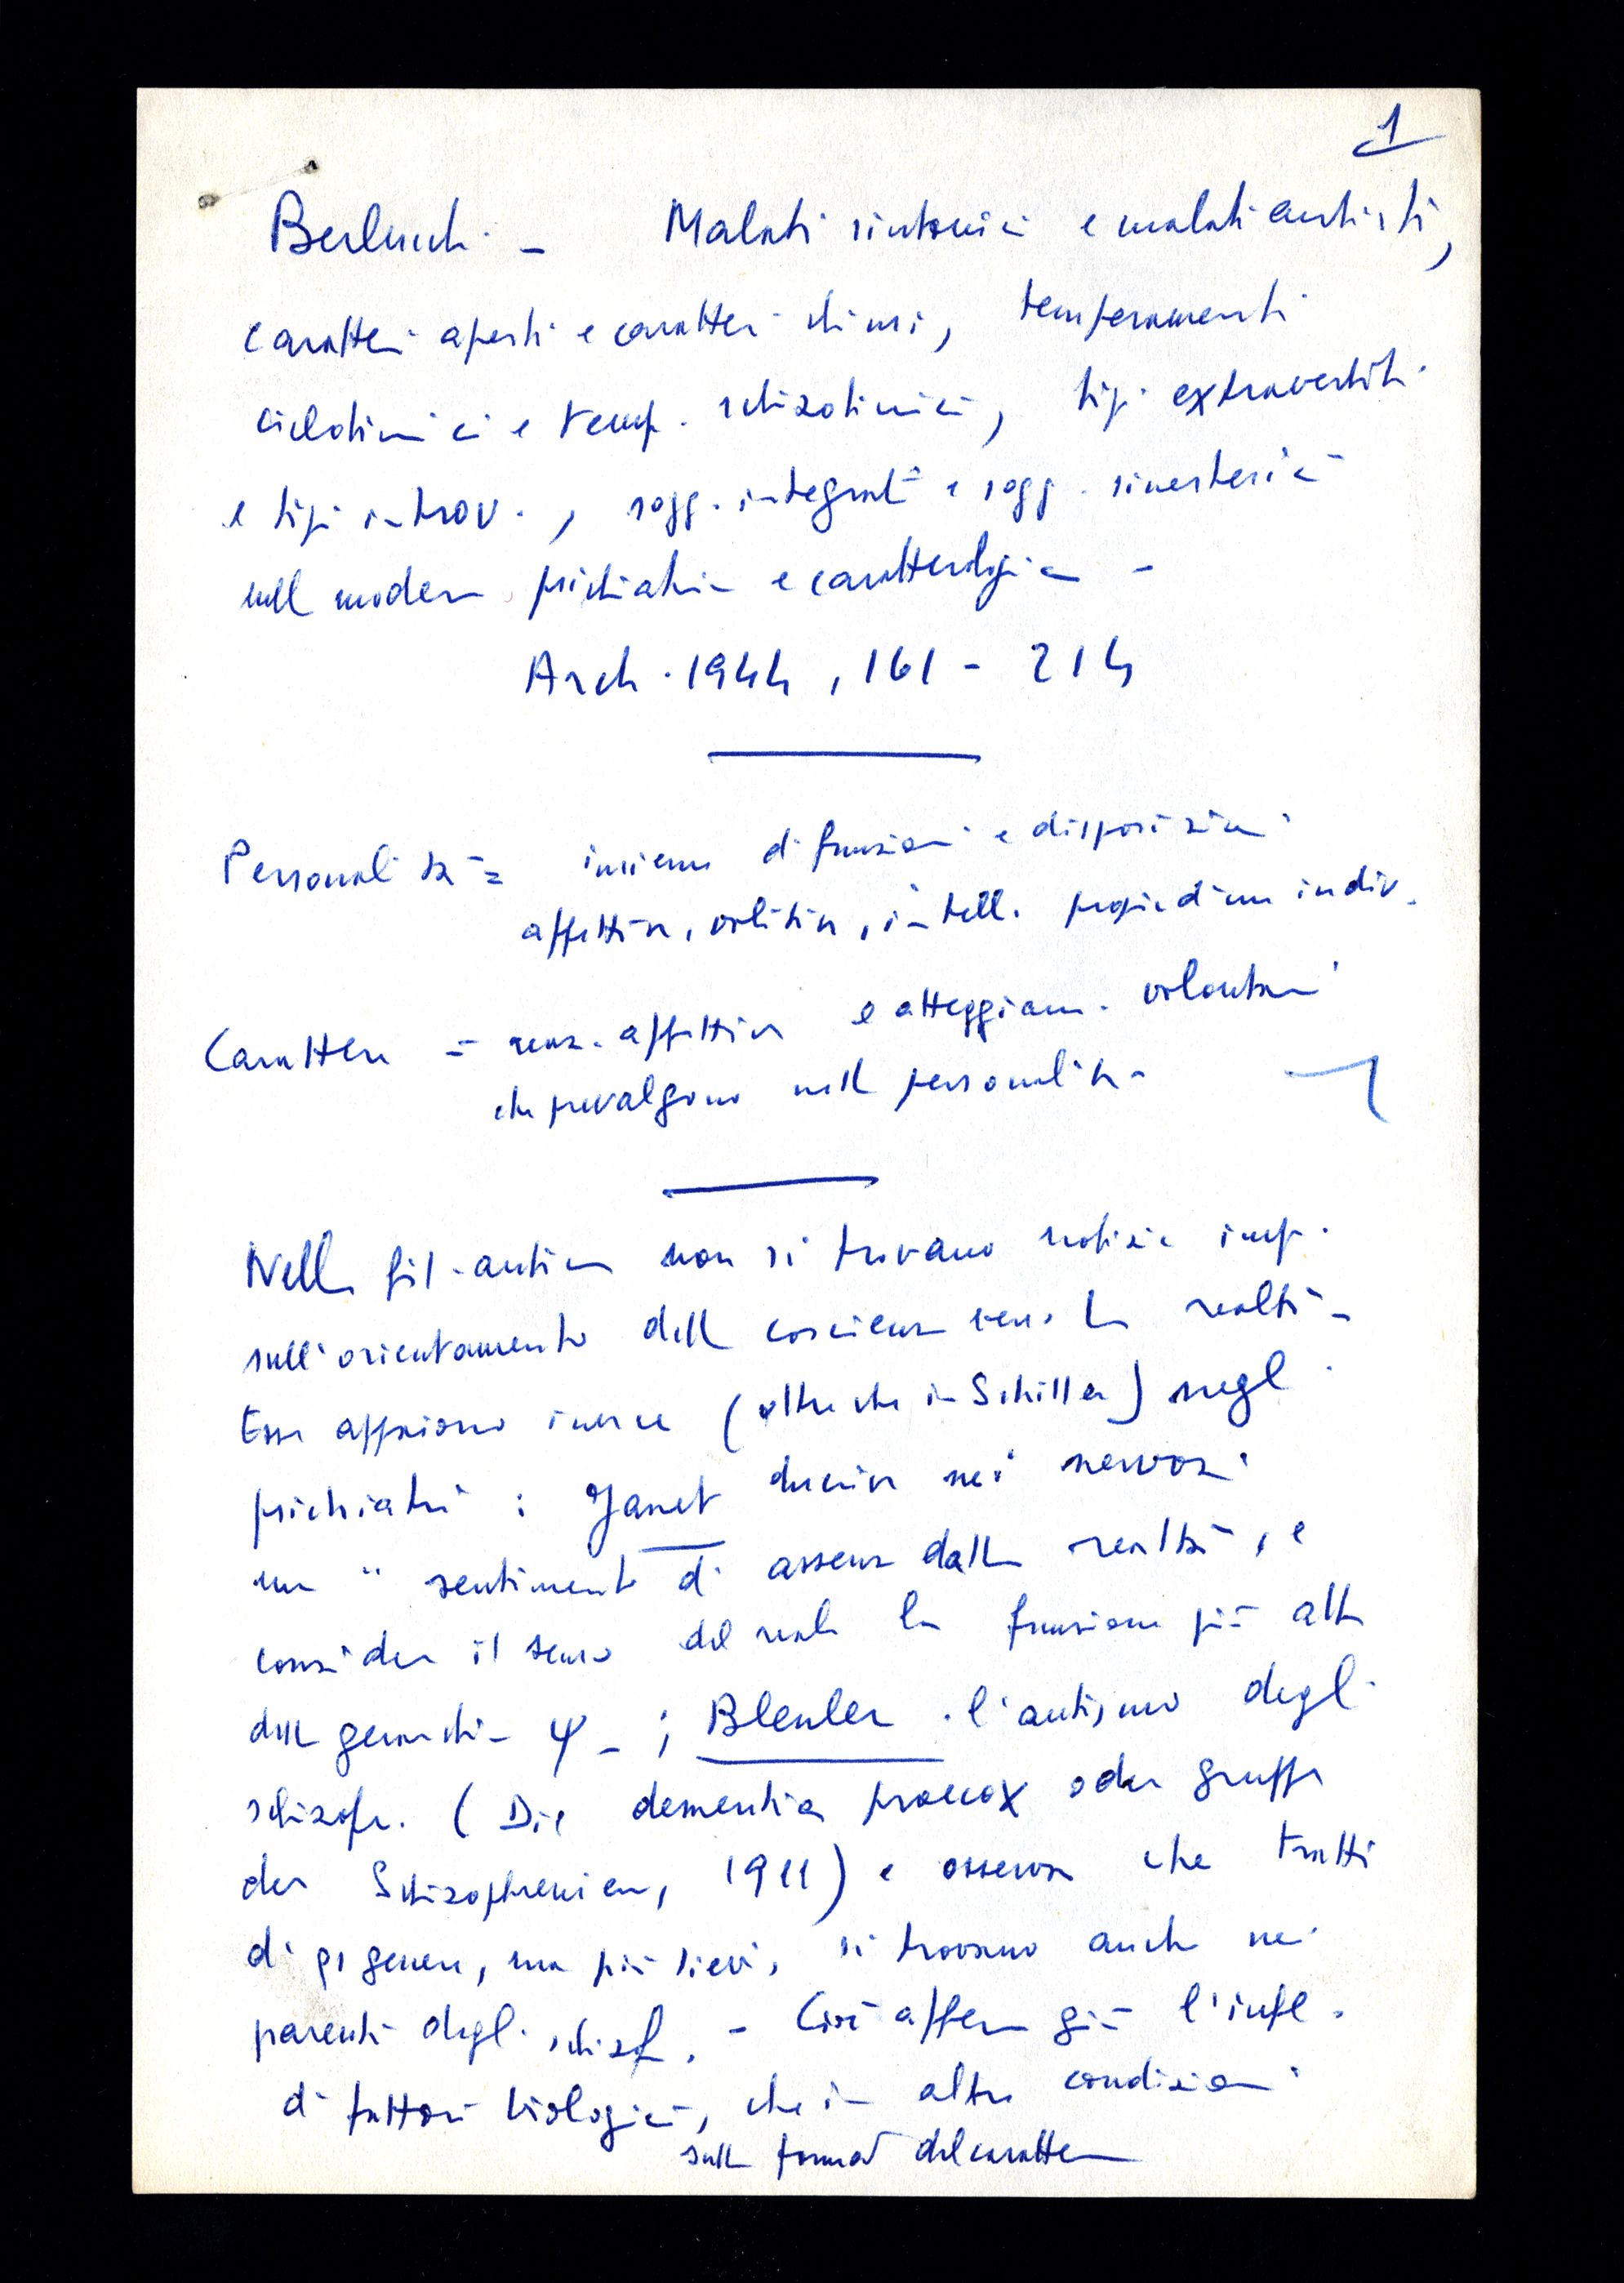 1
Berlucchi - Malati sintonici e malati autisti,
caratteri aperti e caratteri chiusi, temperamenti
ciclotimici e temp. schizotimici, tipi extravertiti
e tipi introv., sogg. integrati e sogg. sinestesici
nella moderna psichiatria e caratterologia -
Arch. 1944, 161 - 214
Personalità = insieme di funzioni e disposizioni
affettive, volitive, intell. proprie di un indiv.
Carattere = reaz. affettive e atteggiam. volontari
che prevalgono nella personalità -
Nella fil. antica non si trovano notizie imp.
sull'orientamento della coscienza verso la realtà -
Esse appaiono invece (oltre che in Schiller) negli
psichiatri : Janet descrive nei nervosi
un " sentimento di assenza dalla realtà, e
considera il senso del reale la funzione più alta
della gerarchia ψ - ; Bleuler l'autismo degli
schizofr. (Die dementia praecox oder gruppe
der Schizophrenien, 1911) e osserva che tratti
di qs genere, ma più lievi, si trovano anche nei
parenti degli schizof. - Così afferma già l'infl.
di fattori biologici, che in altre condizioni
sulla formaz del carattere